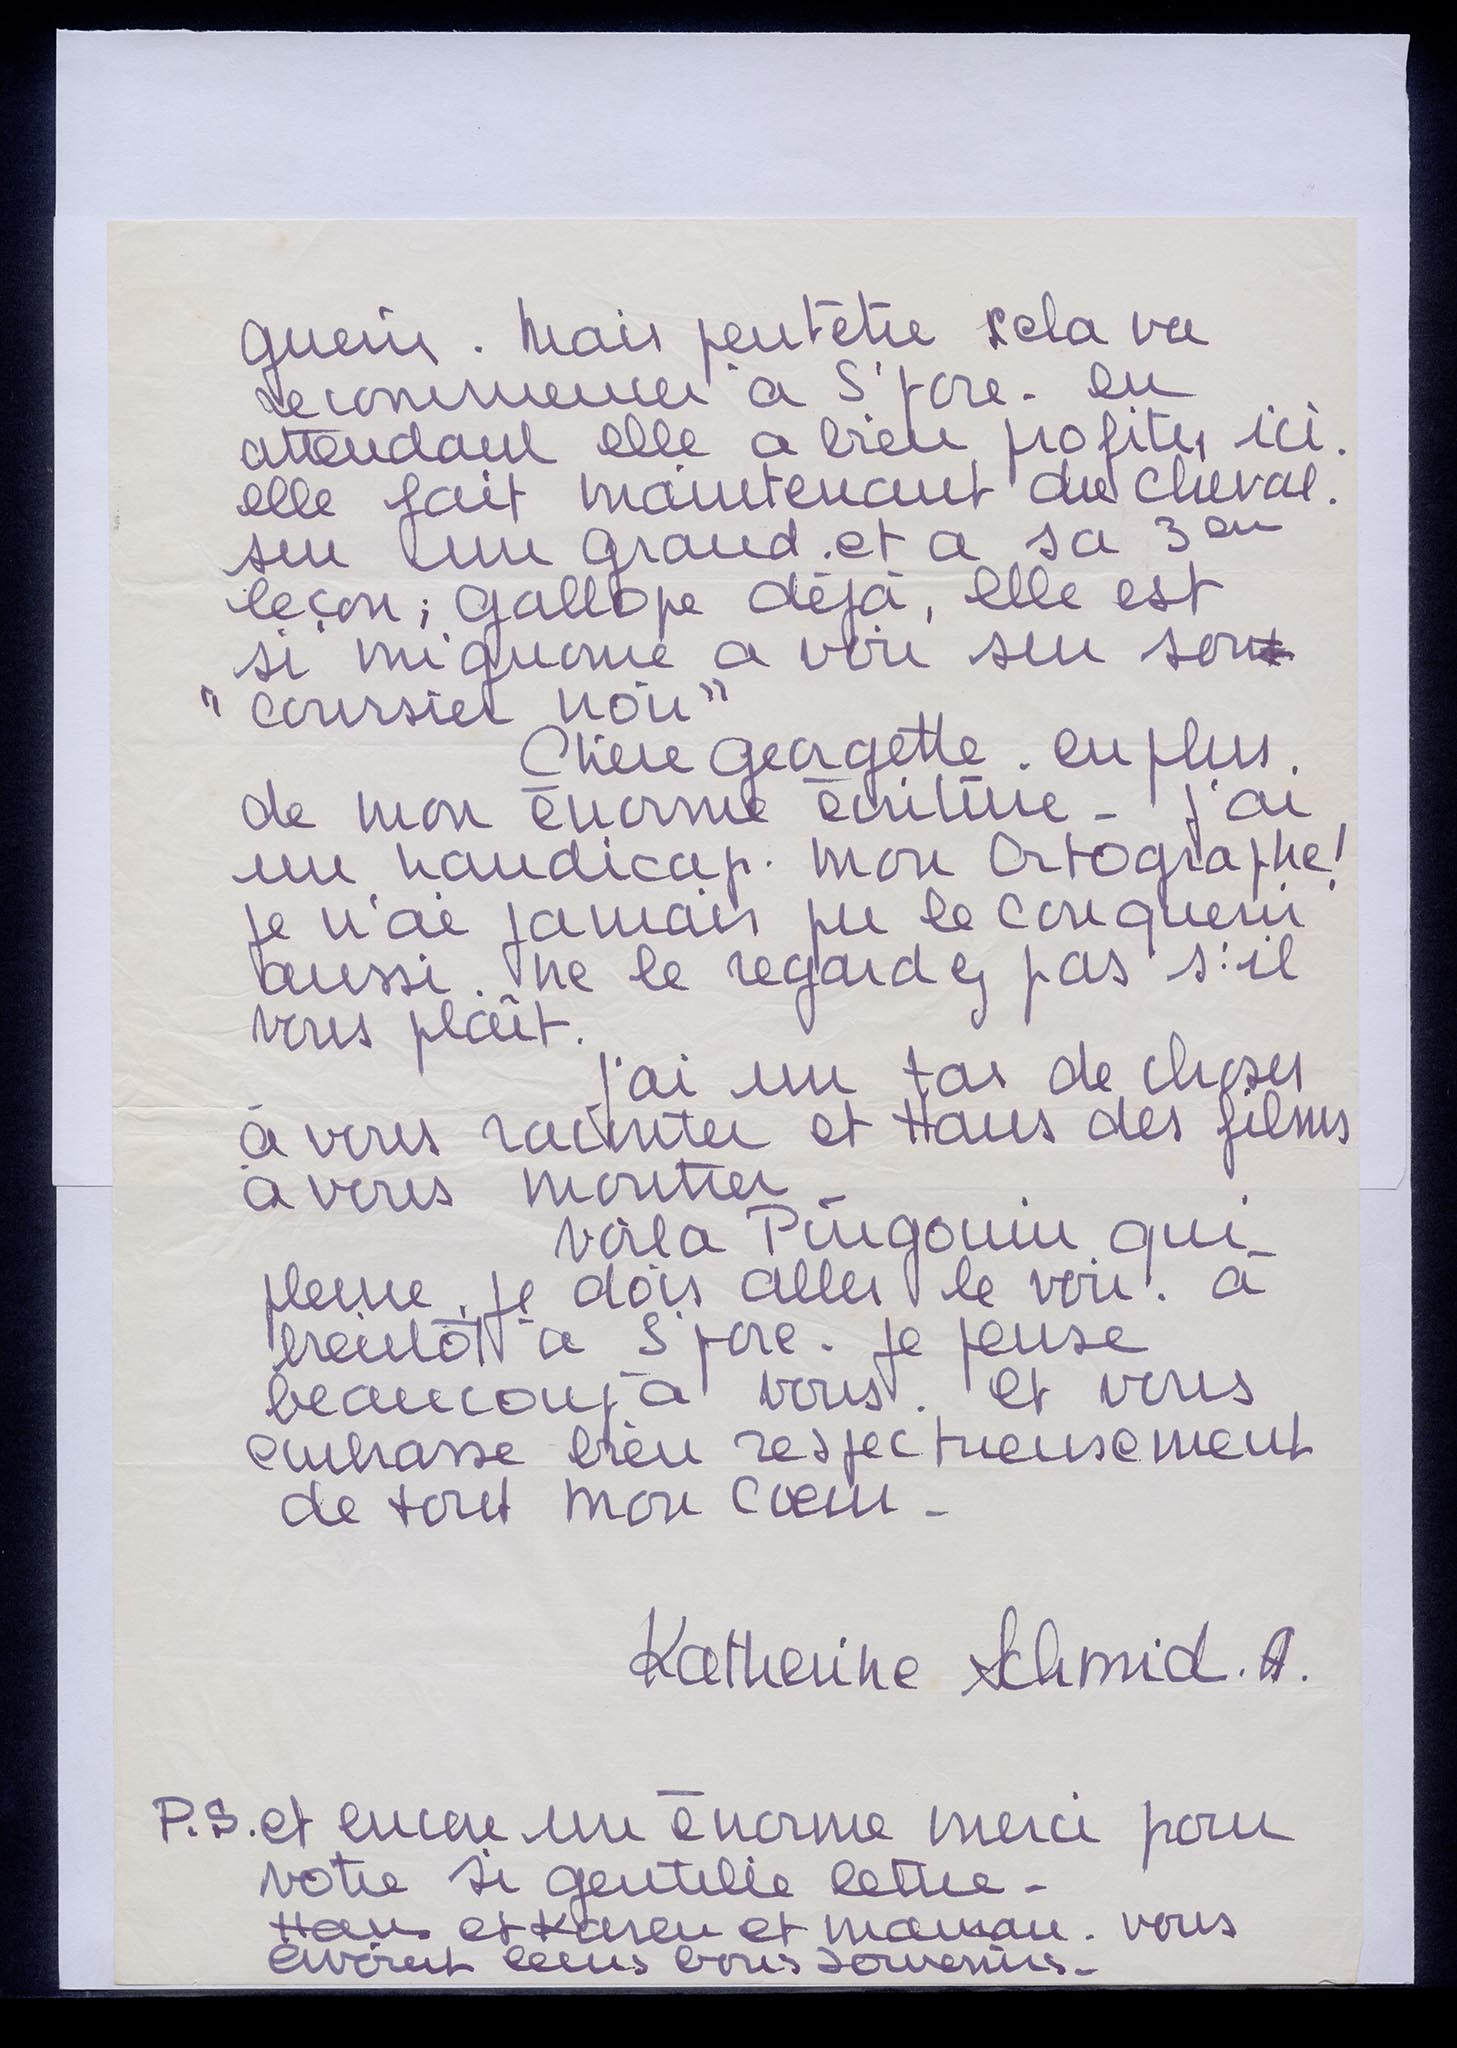 guerir. Mais peut être cela va
recommencer à S'pore. en
attendant elle a bien profiter ici.
elle fait maintenant du cheval.
sur un grand. et a sa 3em
leçon; gallope déjà, elle est
si mignonne a voir sur son
"coursier noir"
Chère Georgette. en plus.
de mon énorme écriture - j'ai
un handicap. mon Ortographe!
je n'ai jamais pu le conquerir
aussi. ne le regardez pas s'il
vous plaît.
j'ai un tas de choses
à vous raconter et Hans des films
à vous montrer -
voila Pingouin qui
pleure. je dois aller le voir. à
bientôt à S'pore. je pense
beaucoup à vous. et vous
embrasse bien respectueusement
de tout mon Cœur -
Katherine Schmid. A.
P.S. et encore un énorme merci pour
votre si gentille lettre -
Hans et Karen et maman. vous
envoient leurs bons souvenirs -